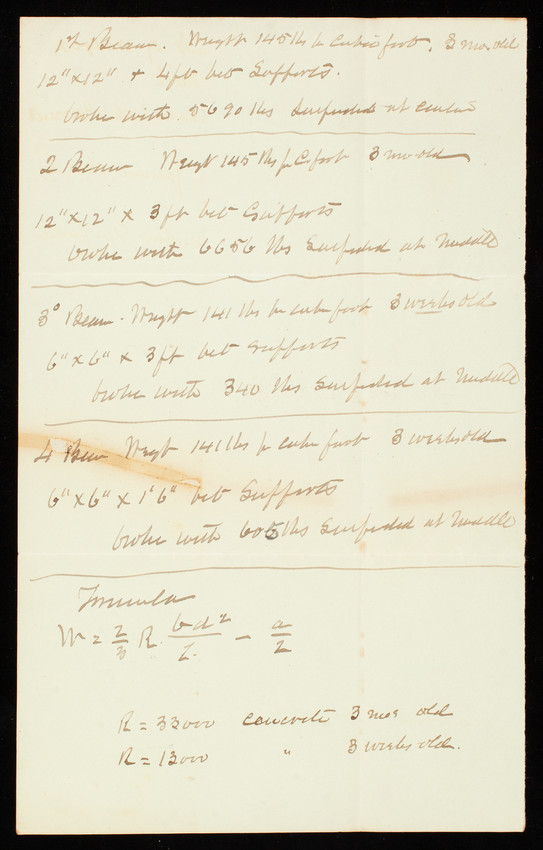 1st Beam. Weight 145 lbs pr Cubic foot. 3 mos old
12" x 12" x 4 ft bet Supports.
broke with 5690 lbs Suspended at center
2 Beam Weigt 145 lbs pr C foot 3 mos old
12" x 12" x 3 ft bet Supports
broke with 6656 lbs Suspended at Middle
3° Beam. Weight 141 lbs pr cube foot 3 weeks old
6" x 6" x 3 ft bet Supports
broke with 340 lbs Suspended at Middle
4 Beam Weigt 141 lbs pr cube foot 3 weeks old
6" x 6" x 1'6" bet Supports
broke with 605 lbs Suspended at Middle
Formula
W = 2/3 R. bd²/L. - a/2
R = 33000 Concrete 3 mos old
R = 13000 " 3 weeks old.